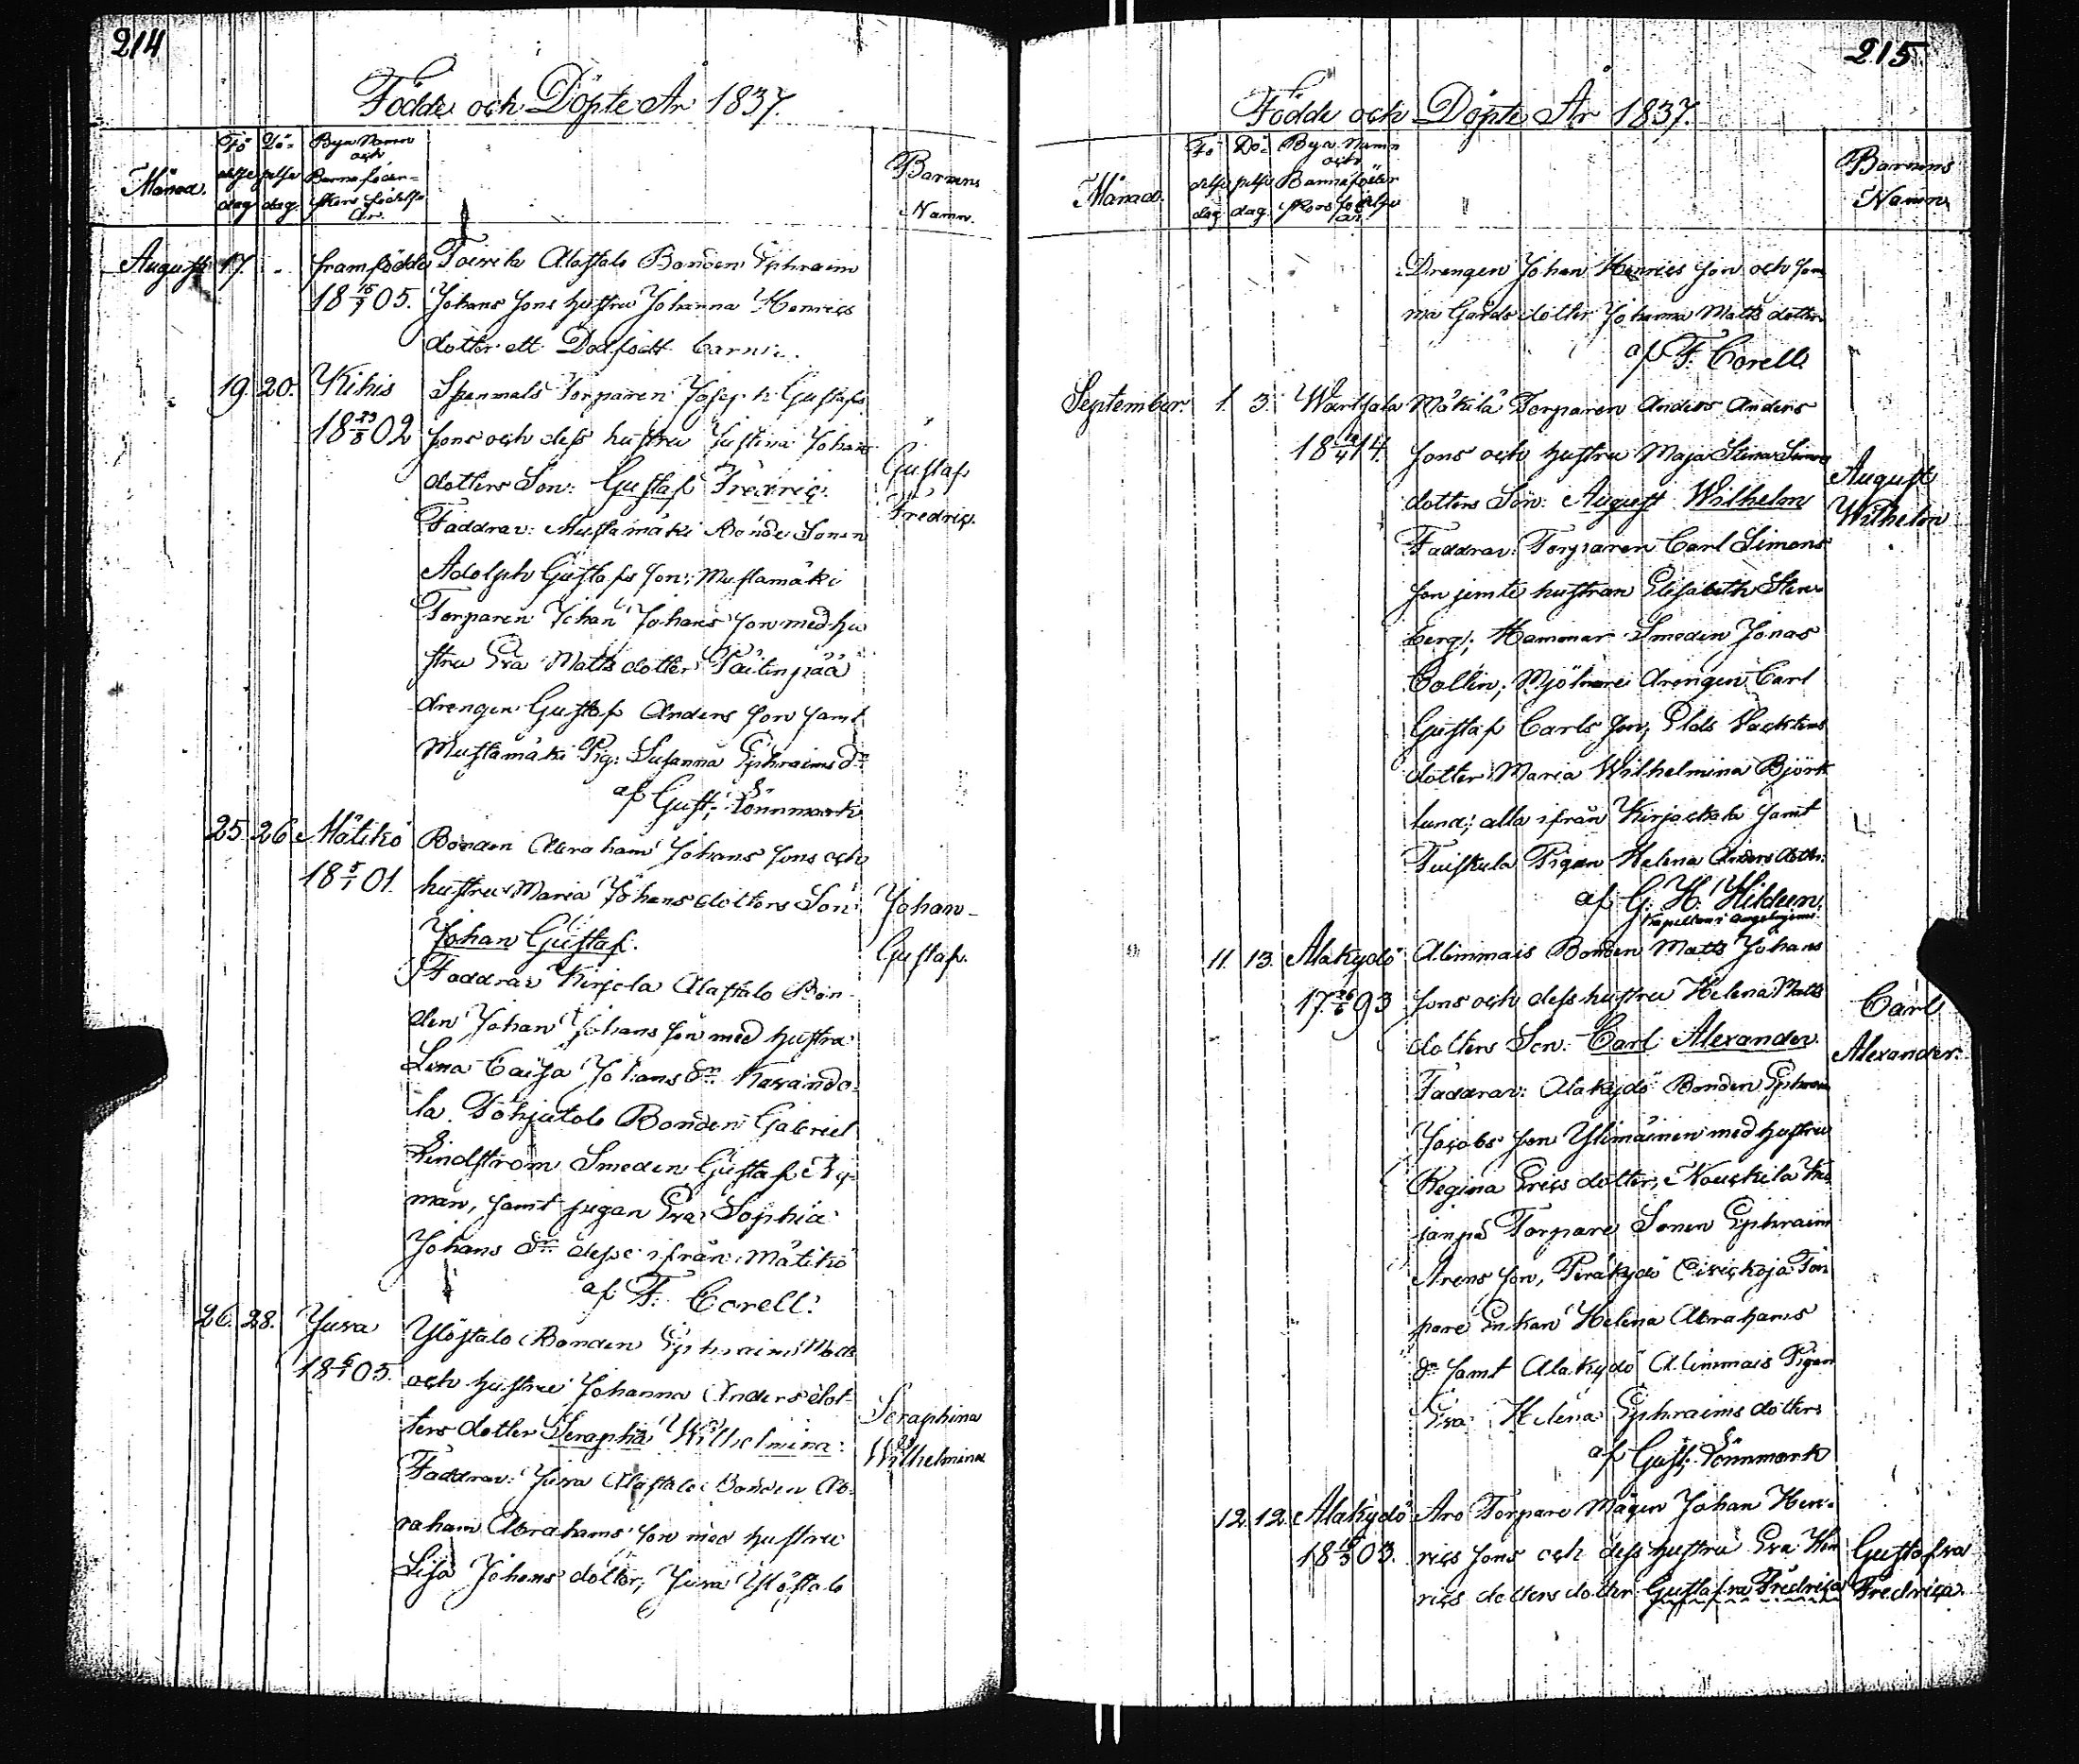 214
Födde och Döpte År 1837.
Månad.
Fö delse dag
Dö= pelse dag.
Bya Namn och Barnaföder= skors födelse År.
Barnens Namn.
Augusti 17. - framfödde Toivela Alastalo Bonden Ephraim
18 15/9 05. Johans sons hustru Johanna Henrics
dotter ett Dödfödt barn.
19. 20. Kihis Spennals Torparen Joseph Gustafs
18 23/8 02 sons och dess hustru Justina Johans
dotters Son: Gustaf Fredric.
Gustaf
Fredric.
Faddrar: Mustamäki Bonde Sonen
Adolph Gustafs son; Mustamäki
Torparen Johan Johans son med hu
stru Eva Matts dotter
drengen Gustaf Anders son samt
Mustamäki Pig: Susanna Ephraims dr
af Gust: Lönnmark
25. 26 Mätikö Bonden Abraham Johans sons och
18 5/1 01. hustru Maria Johans dotters Son
Johan Gustaf.
Johan
Gustaf.
Faddrar Kirjola Alastalo Bon
den Johan Johans son med hustru
Lena Caisa Johans dr Karando
la Pohjatalo Bonden Gabriel
Lindström Smeden Gustaf Ny
man, samt pigan Eva Sophia
Johans dr desse ifrån Mätikö
af F. Corell.
26. 28. Juva Ylöstalo Bonden Ephraim Matts
18 6/1 05. och hustru Johanna Anders dot
ters dotter Seraphia Wilhelmina:
Seraphina
Wilhelmina
Faddrar: Juva Alastalo Bonden Ab
raham Abrahams son med hustru
Lisa Johans dotter, Juva Ylöstalo
215
Födde och Döpte År 1837.
Månad.
Fö delse dag
Dö= pelse dag
Bya Namn och Barnaföder skors födelse år.
Barnens Namn
Drengen Johan Henrics son och sam
ma Gårds dotter Johanna Matts dotter.
af F. Corell
September. 1. 3. Wartsala Mäkilä Torparen Anders Anders
18 14. sons och hustru Maja Stina Simons
dotters Son: August Wilhelm
August
Wilhelm
Faddrar: Torparen Carl Simons
son jemte hustran Elisabeth Sten
berg; Hammar Smeden Jonas
Bollin; Mjölnare drengen Carl
Gustaf Carls son; Elds Vacktens
dotter Maria Wilhelmina Björk
lund; alla ifrån Kirjackala samt
Tuiskula Pigan Helena Anders dotter
af G. H. Hildeen.
Kapellan i Angelniemi
11. 13. Alakydö Alimmais Bonden Matts Johans
17 26/6 93 sons och dess hustru Helena Matts
dotters Son: Carl Alexander.
Carl
Alexander.
Faddrar: Alakydö Bonden Ephraim
Jacobs son Ylimäinen med hustru
Regina Erics dotter,
Torpare Sonen Ephraim
son, Peräkydö Tor
pare Enkan Helena Abrahams
dr samt Alakydö Alimmais Pigan
Eva Helena Ephraims dotter
af Gust: Lönnmark
12. 12. Alakydö Aro Torpare Mågen Johan Hen
18 03. rics sons och dess hustru Eva Hen
rics dotters dotter Gustafva Fredrica
Gustafva
Fredrica.